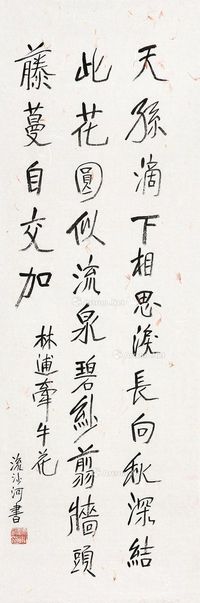 天孫滴下相思淚長向秋深結
此花圓似流泉碧紗翦牆頭
藤蔓自交加
林逋牽牛花
流沙河書